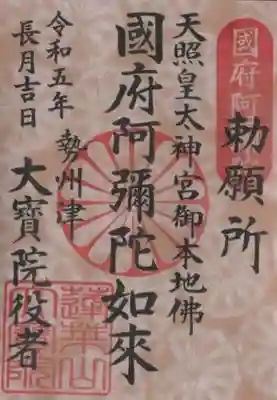 勅願所
天照皇太神宮御本地佛
國府阿彌陀如來
勢州津
大寶院役者
令和五年
長月吉日
國府阿
蓮華山